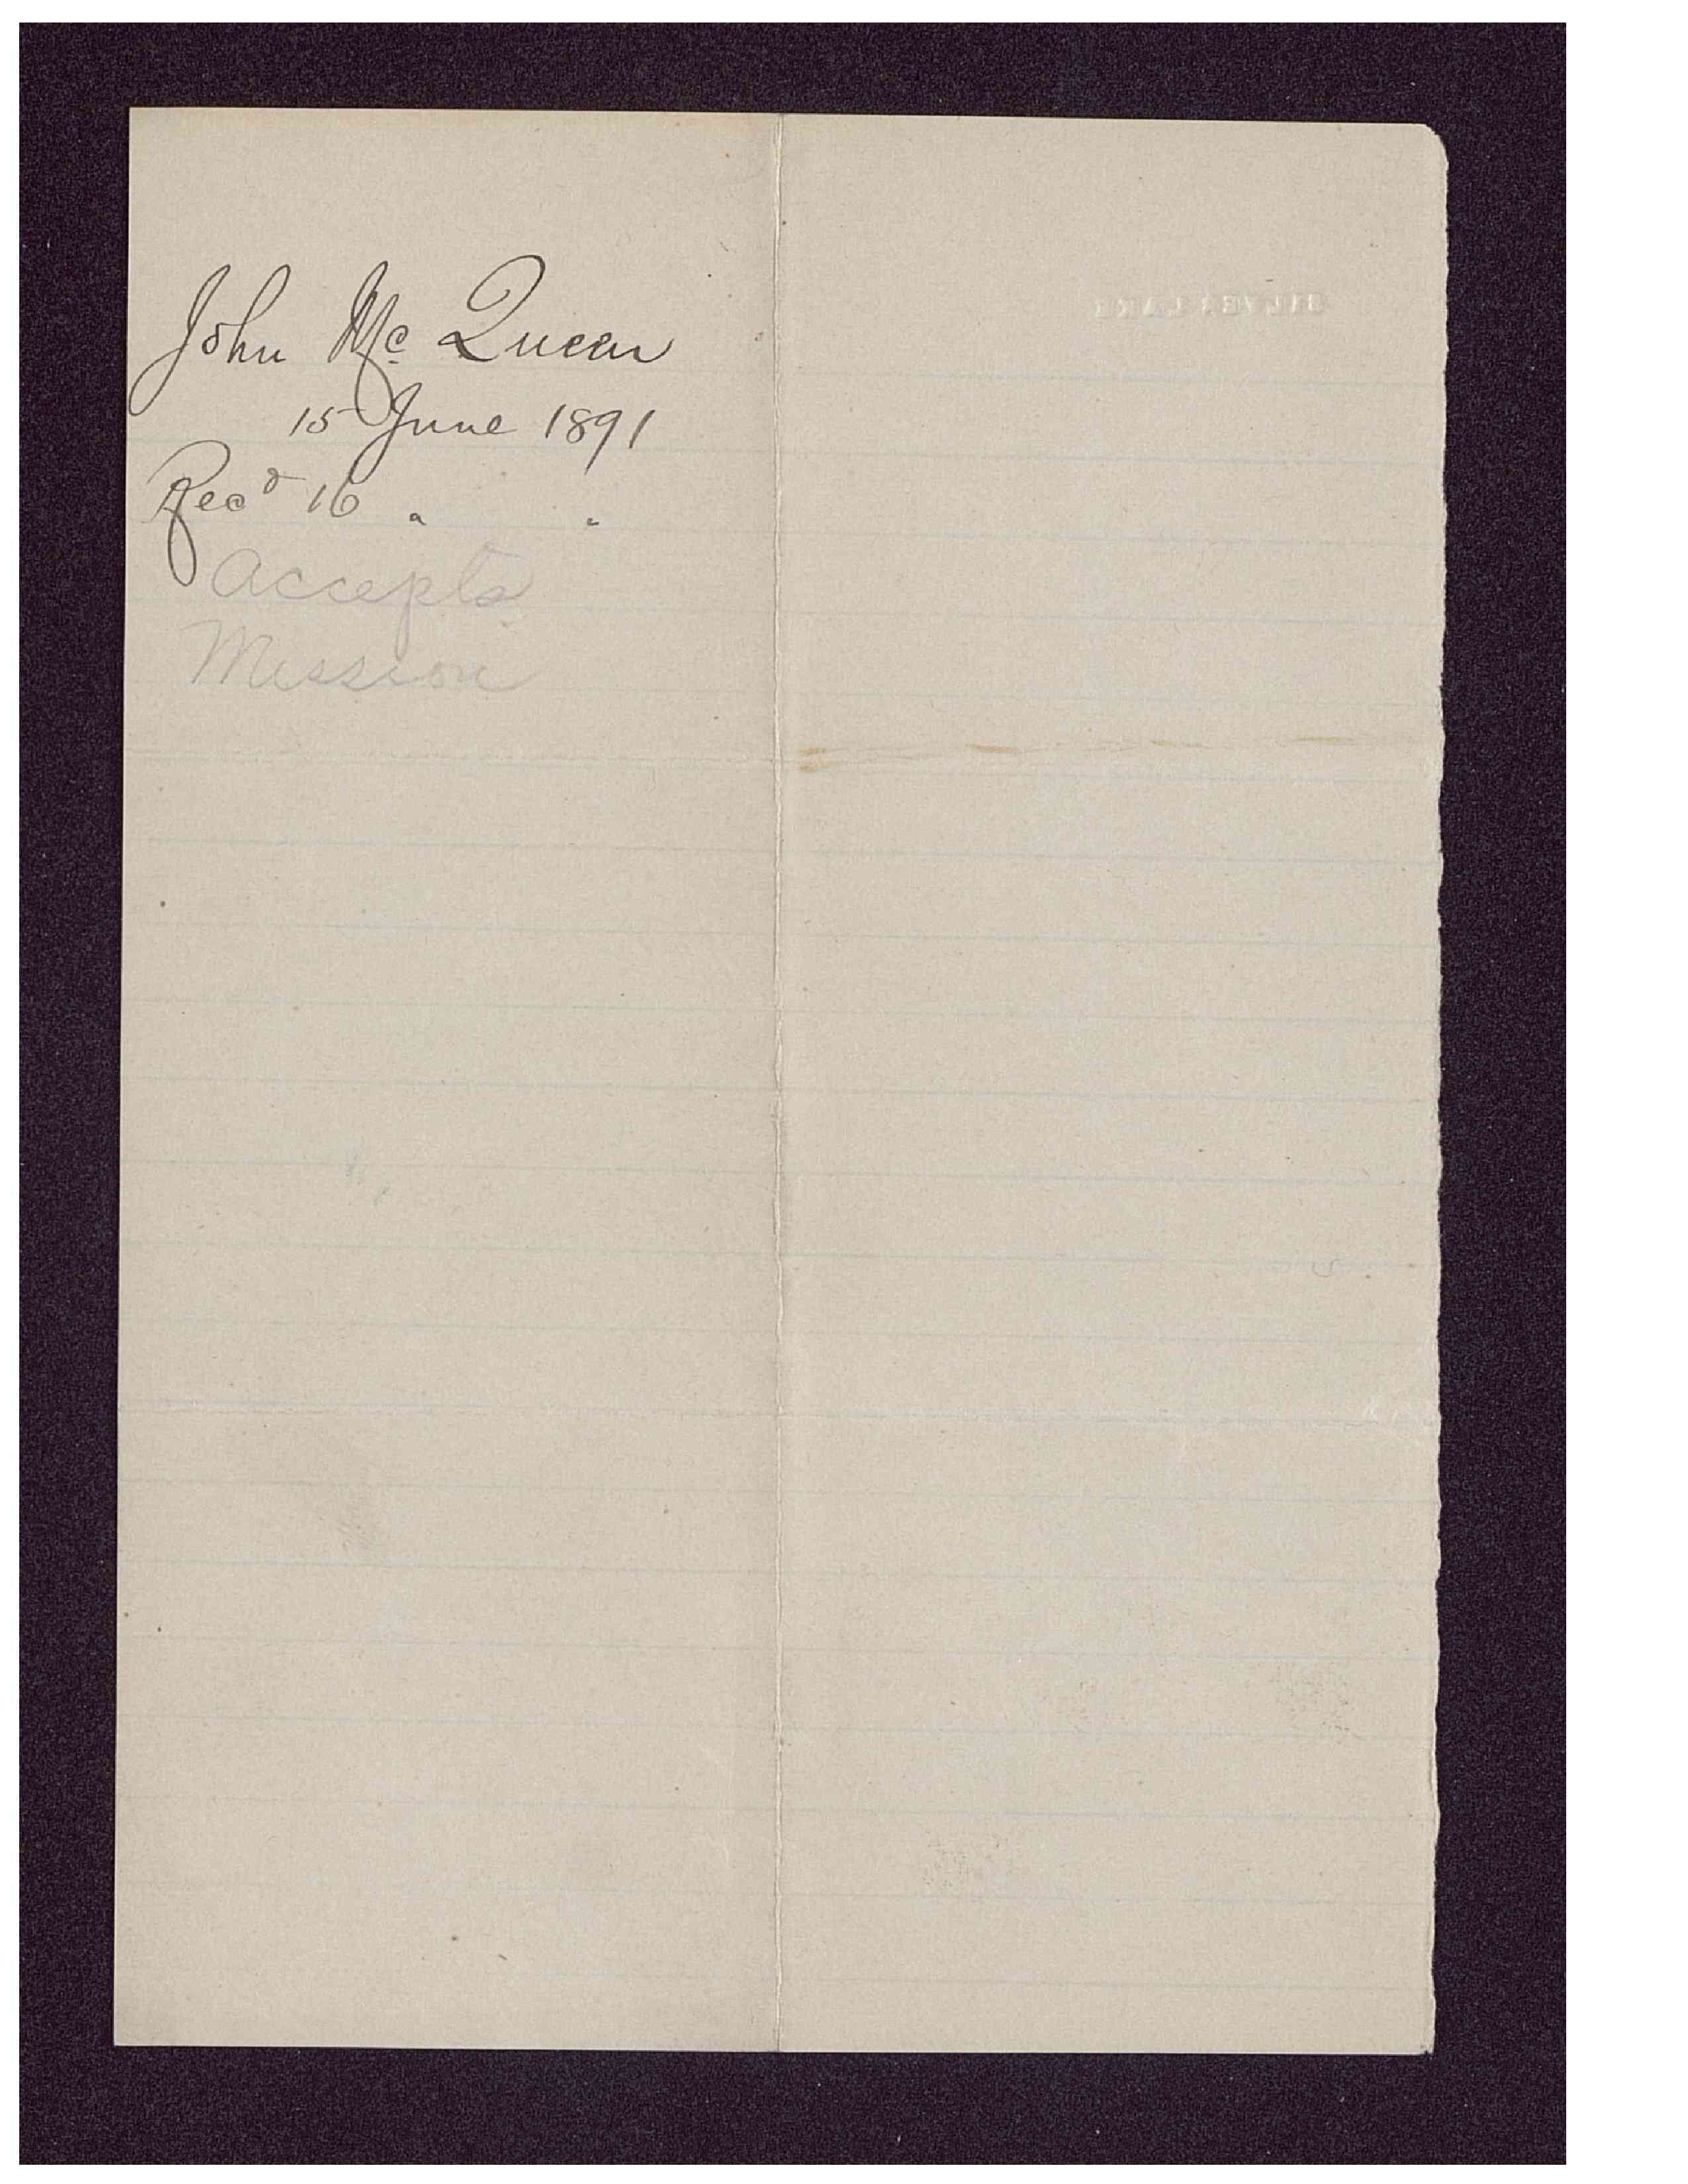 John Mc Queen
15 June 1891
Recd 16 " "
Accepts
Mission
SILVER LAKE